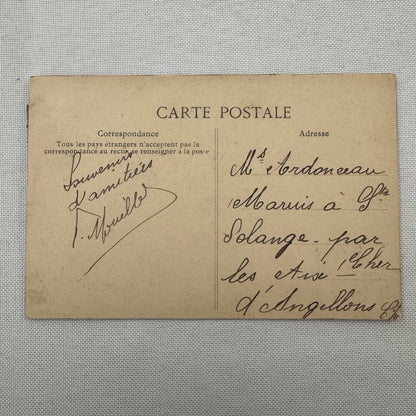 CARTE POSTALE
Correspondance
Tous les pays étrangers n'acceptent pas la
correspondance au recto, se renseigner à la poste
Souvenirs
d'amitiés
Adresse
Ms Ardonceau
à Ste
Solange par
les Aix Cher
d'Angillons